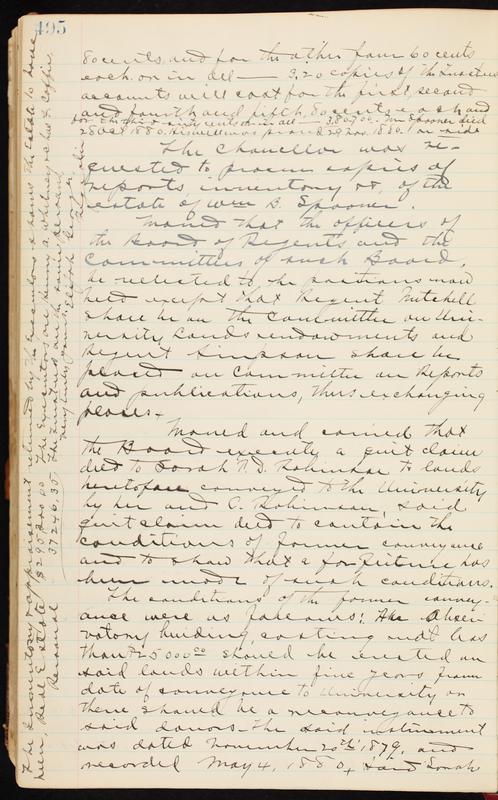 495
80 cents, and for the other four 60 cents
each. or in all — 3.20 copies of the Trustees
accounts will cost for the first, second
and fourth and fifth, 80 cents, each and
for the third cents or in all — Spooner died
28 Oct 1880. his will was 29 Nov. 1880.
The Chancellor was re-
quested to procure copies of
reports inventory &c, of the
estate of Wm B. Spooner.
Moved that the officers of
the Board of Regents and the
Committees of such Board,
be reelected to the positions now
held except that Regent Mitchell
shall be on the Committee on Uni-
versity, Lands endowments and
Regent Simpson shall be
placed on Committee on Reports
and publications, thus exchanging
places.
Moved and carried that
the Board execute a quit claim
deed to Sarah A. D. Robinson to lands
heretofore conveyed to the University
by her and C. Robinson, said
quit claim deed to contain the
conditions of former conveyance
and to show that a forfeiture has
been made of such conditions.
The conditions of the former convey-
ance were as follows: An Obser-
vatory building, costing not less
than $25 000 00 should be erected on
said lands within five years from
date of conveyance to University or
there should be a reconveyance to
said donors. The said instrument
was dated November 20th 1879, and
recorded May 4, 1880, said Sarah
The inventory & appraisement returned by the Executors shows the Estate to have
been, Real Estate $295 200.00
Personal 39246.30
The Executors are Henry A. Whitney
The Trustees are the same persons
Very truly yours
Elijah George